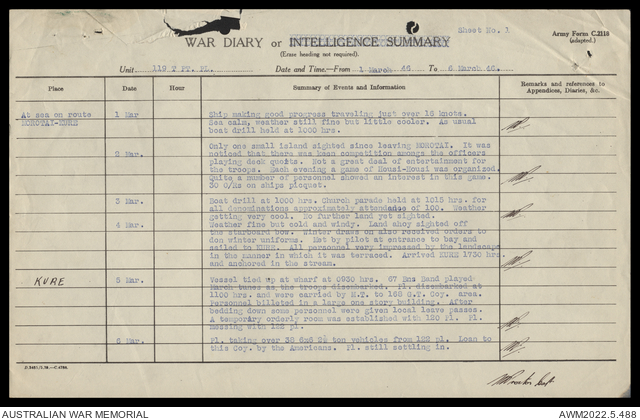 Sheet No. 1
WAR DIARY or INTELLIGENCE SUMMARY
Army Form C.2118
(adapted.)
(Erase heading not required).
Unit 119 T PT. PL. Date and Time.—From 1 March 46 To 6 March 46.
Place Date Hour Summary of Events and Information Remarks and references to
Appendices, Diaries, &c.
At sea on route 1 Mar Ship making good progress traveling just over 12 knots.
MOROTAI-KURE Sea calm, weather still fine but little cooler. As usual
boat drill held at 1000 hrs.
2 Mar. Only one small island sighted since leaving MOROTAI. It was
noticed that there was keen competition amongs the officers
playing deck quoits. Not a great deal of entertainment for
the troops. Each evening a game of Housi-Housi was organized.
Quite a number of personnel showed an interest in this game.
30 O/Rs on ships picquet.
3 Mar. Boat drill at 1000 hrs. Church parade held at 1015 hrs. for
all denominations approximately attendance of 100. Weather
getting very cool. No further land yet sighted.
4 Mar. Weather fine but cold and windy. Land ahoy sighted off
the starboard bow. Winter draws on also received orders to
don winter uniforms. Met by pilot at entrance to bay and
sailed to KURE. All personnel very impressed by the landscape
in the manner in which it was terraced. Arrived KURE 1730 hrs
and anchored in the stream.
KURE 5 Mar. Vessel tied up at wharf at 0930 hrs. 67 Bns Band played
March tunes as the troops disembarked. Pl. disembarked at
1100 hrs. and were carried by M.T. to 168 G.T. Coy. area.
Personnel billeted in a large one story building. After
bedding down some personnel were given local leave passes.
A temporary orderly room was established with 120 Pl. Pl.
messing with 122 pl.
6 Mar. Pl. taking over 30 6x6 2½ ton vehicles from 122 pl. Loan to
this Coy. by the Americans. Pl. still settling in.
AUSTRALIAN WAR MEMORIAL AWM2022.5.488